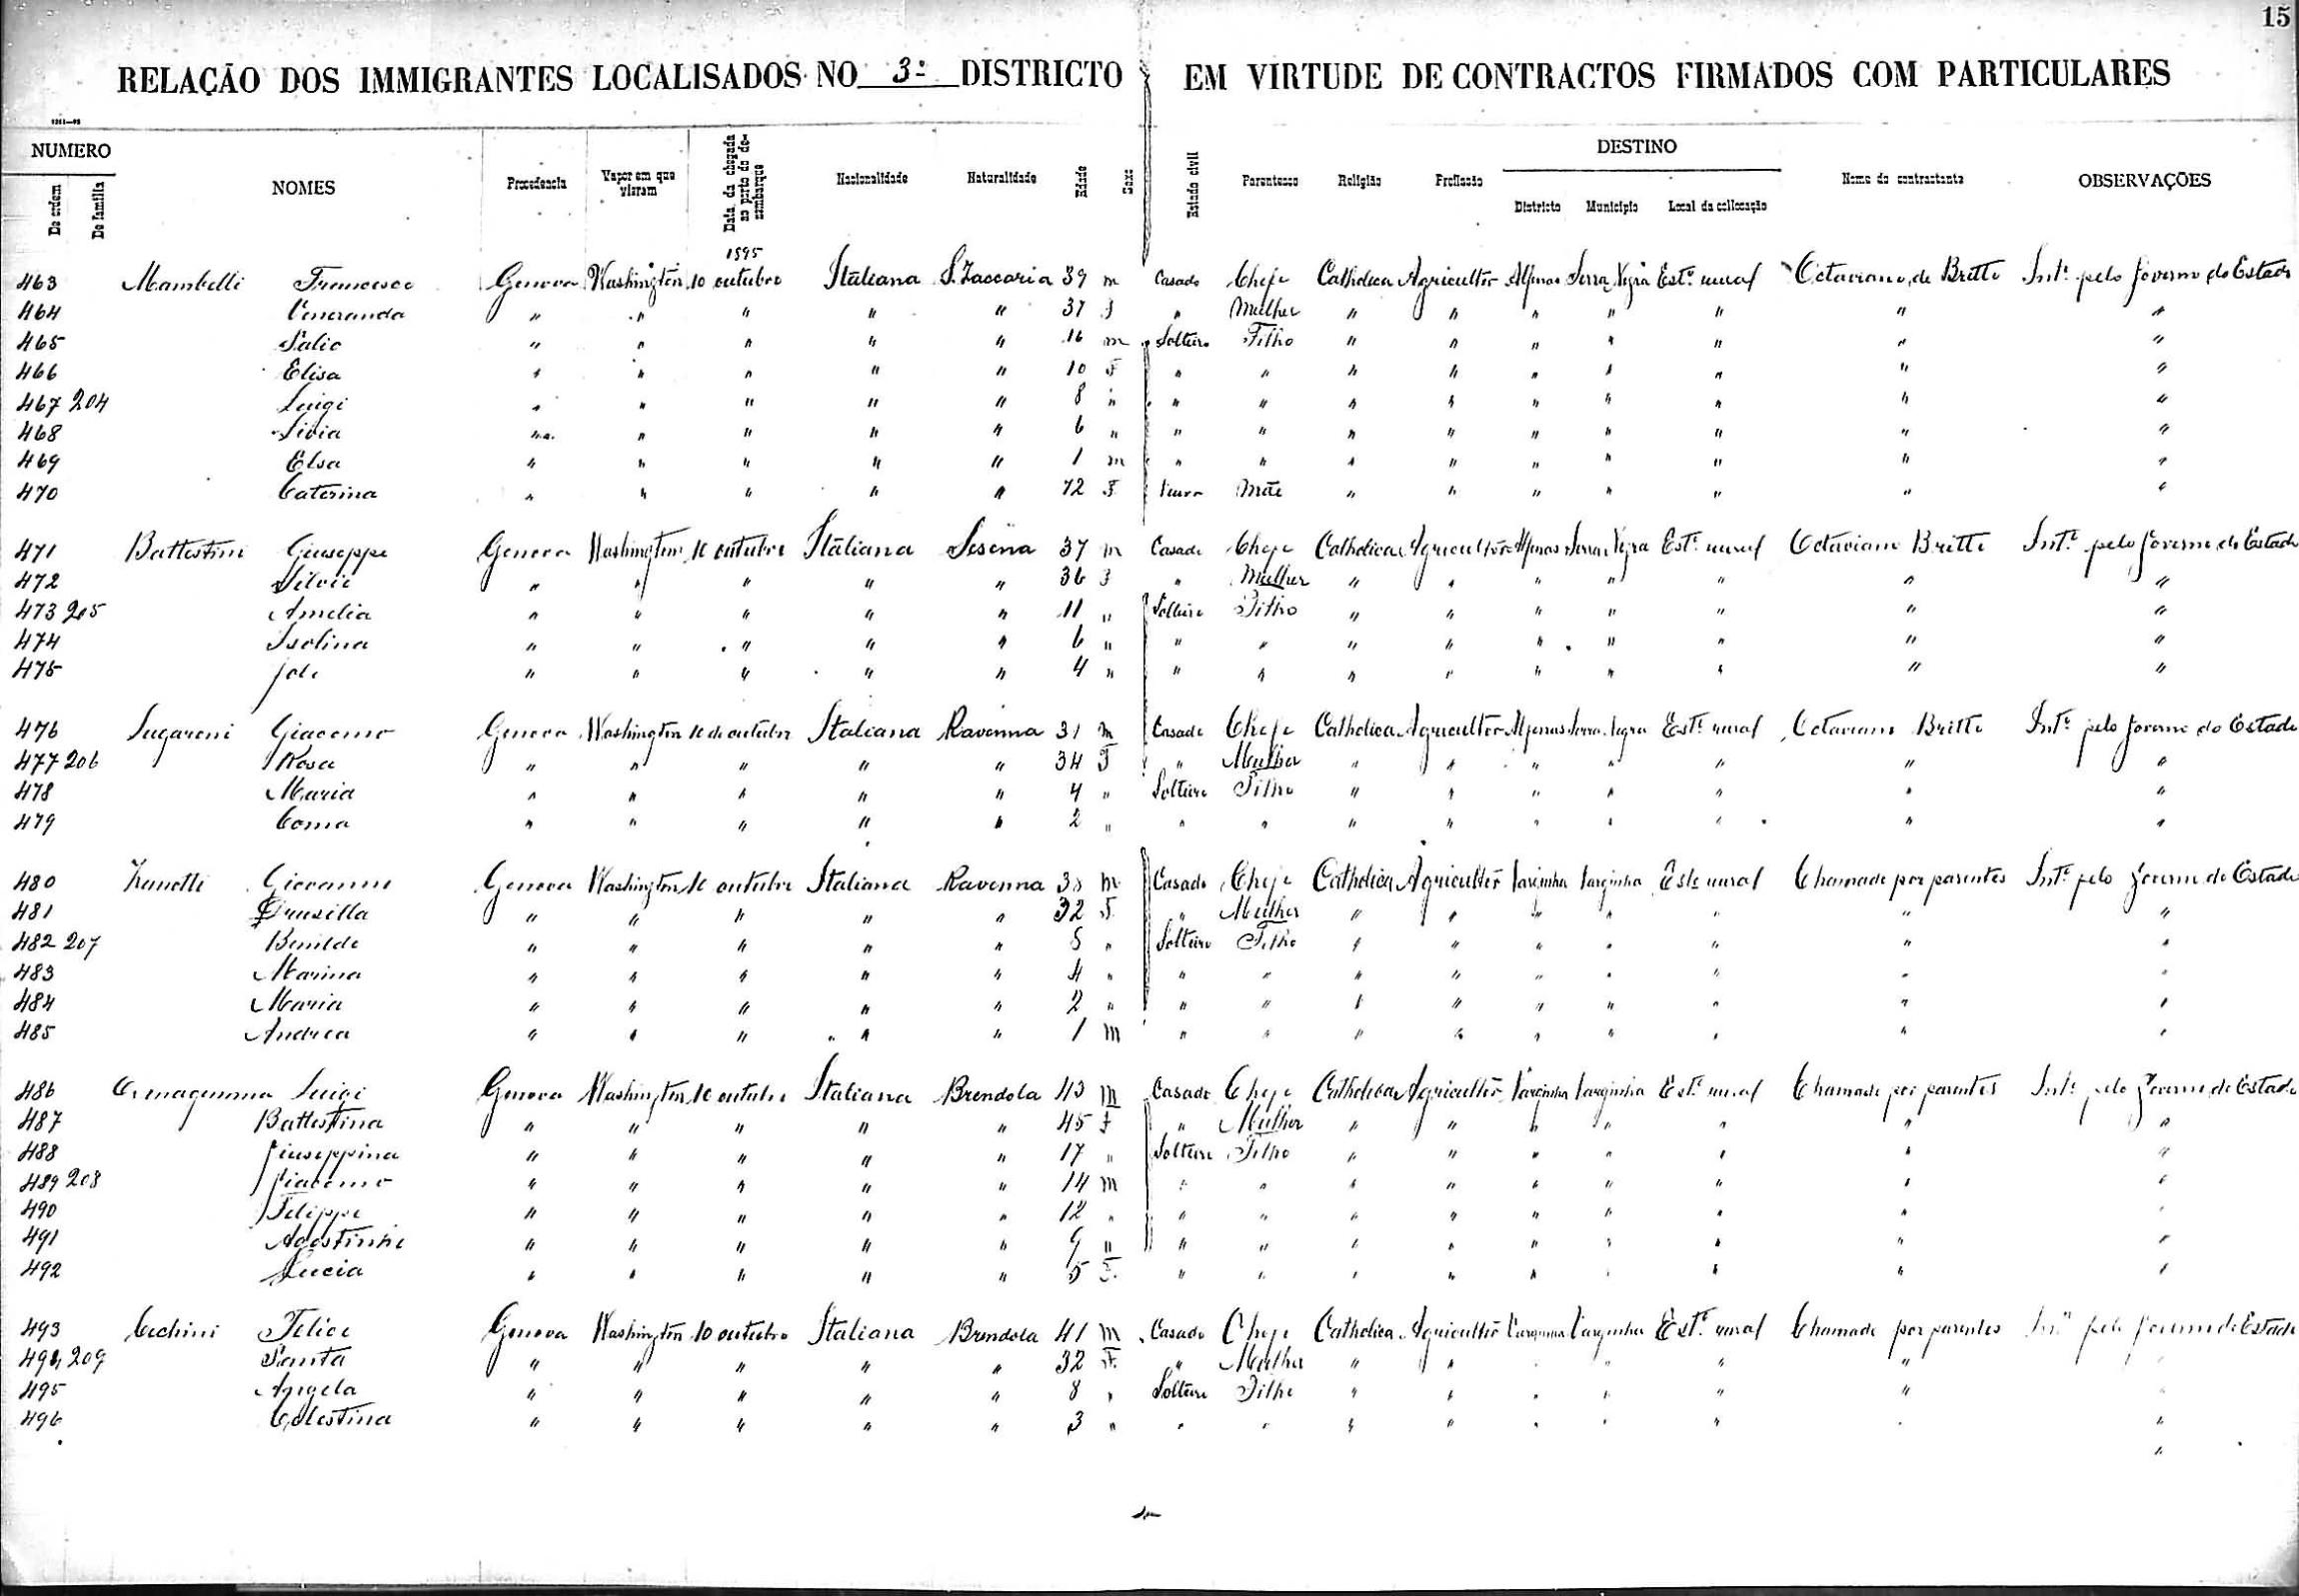 15
RELAÇÃO DOS IMMIGRANTES LOCALISADOS NO 3º DISTRICTO EM VIRTUDE DE CONTRACTOS FIRMADOS COM PARTICULARES
NUMERO DESTINO
De ordem De familia NOMES Procedencia Vapor em que vieram Data da chegada ao porto do desembarque Nacionalidade Naturalidade Edade Sexo Estado civil Parentesco Religião Profissão Districto Municipio Local da collocação Nome do contractante OBSERVAÇÕES
1895
463 Mambelli Francesco Genova Washington 10 outubro Italiana S. Zaccaria 39 m Casado Chefe Catholica Agricultor Alfenas Serra Negra Est.º rural Octaviano de Britto Int.º pelo Governo do Estado
464 Veneranda " " " " " 37 f " Mulher " " " " " " "
465 Salio " " " " " 16 m Solteiro Filho " " " " " " "
466 Elisa " " " " " 10 F " " " " " " " " "
467 204 Luigi " " " " " 8 " " " " " " " " " "
468 Livia " " " " " 6 " " " " " " " " " "
469 Elsa " " " " " 1 m " " " " " " " " "
470 Caterina " " " " " 72 F Viuva Mãe " " " " " " "
471 Battestini Giuseppe Genova Washington 10 outubro Italiana Sesena 37 m Casado Chefe Catholica Agricultor Alfenas Serra Negra Est.º rural Octaviano Britto Int.º pelo Governo do Estado
472 Silvie " " " " " 36 f " Mulher " " " " " " "
473 205 Amelia " " " " " 11 " Solteiro Filho " " " " " " "
474 Isolina " " " " " 6 " " " " " " " " " "
475 " " " " " 4 " " " " " " " " " "
476 Sugaroni Giacomo Genova Washington 10 de outubro Italiana Ravenna 31 m Casado Chefe Catholica Agricultor Alfenas Serra Negra Est.º rural Octaviano Britto Int.º pelo Governo do Estado
477 206 Rosa " " " " " 34 F " Mulher " " " " " " "
478 Maria " " " " " 4 " Solteiro Filho " " " " " " "
479 Coma " " " " " 2 " " " " " " " " " "
480 Zanotti Giovanni Genova Washington 10 outubro Italiana Ravenna m Casado Chefe Catholica Agricultor Varginha Varginha Est.º rural Chamado por parentes Int.º pelo Governo do Estado
481 Drusilla " " " " " 32 F " Mulher " " " " " " "
482 207 Benilde " " " " " 5 " Solteiro Filho " " " " " " "
483 Marina " " " " " 4 " " " " " " " " " "
484 Maria " " " " " 2 " " " " " " " " " "
485 Andrea " " " " " 1 m " " " " " " " " "
486 Luigi Genova Washington 10 outubro Italiana Brendola 43 m Casado Chefe Catholica Agricultor Varginha Varginha Est.º rural Chamado por parentes Int.º pelo Governo do Estado
487 Battestina " " " " " 45 f " Mulher " " " " " " "
488 Giuseppina " " " " " 17 " Solteiro Filho " " " " " " "
489 208 Giacomo " " " " " 14 m " " " " " " " " "
490 Filippe " " " " " 12 " " " " " " " " " "
491 Agostinho " " " " " 9 " " " " " " " " " "
492 Lucia " " " " " 5 F " " " " " " " " "
493 Cechini Felice Genova Washington 10 outubro Italiana Brendola 41 m Casado Chefe Catholica Agricultor Varginha Varginha Est.º rural Chamado por parentes Int.º pelo Governo do Estado
494 209 Santa " " " " " 32 F " Mulher " " " " " "
495 Angela " " " " " 8 " Solteiro Filho " " " " " "
496 Celestina " " " " " 3 " " " " " " " " " "
"